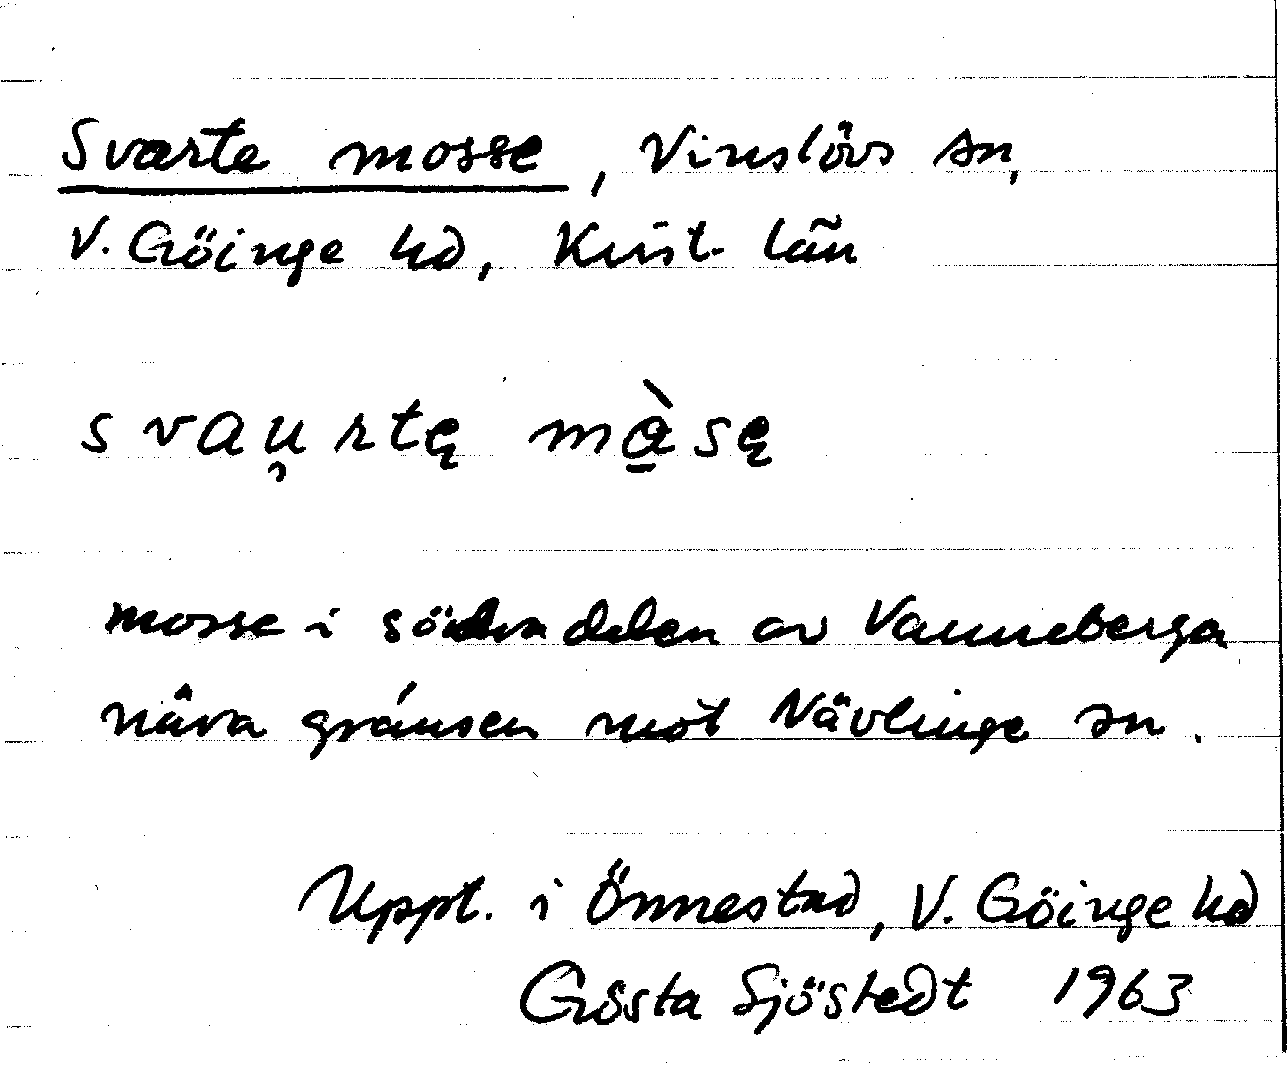 Svarte mosse, Vinslövs sn,
V. Göinge hd, Krist. län
svau̡rtę mà̱sę
mosse i södra delen av Vanneberga
nära gränsen mot Nävlinge sn.
Uppt. i Önnestad, V. Göinge hd
Gösta Sjöstedt 1963